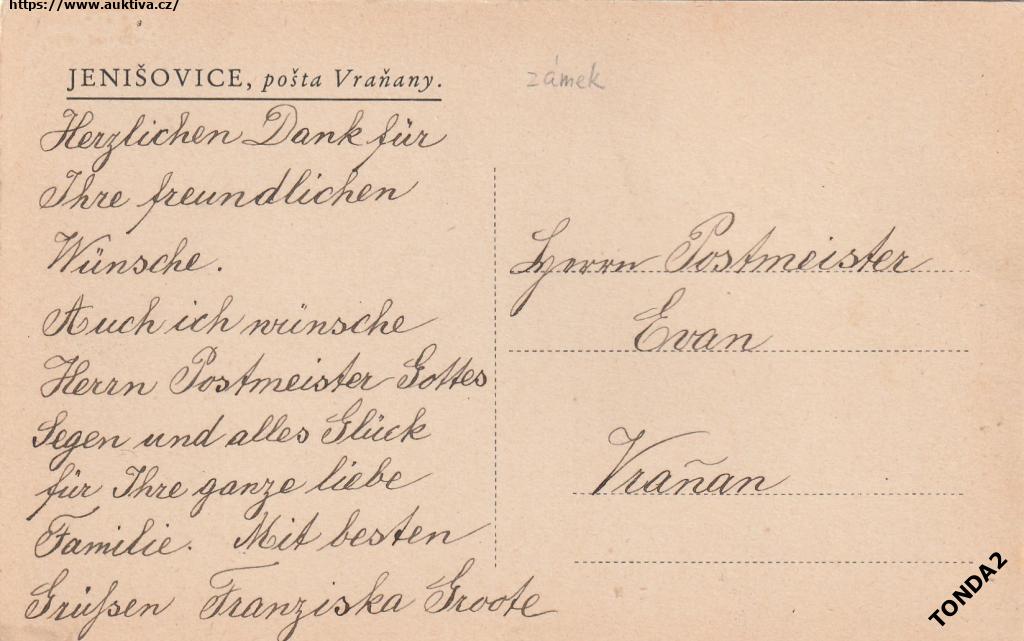 https://www.auktiva.cz/
JENIŠOVICE, pošta Vraňany.
zámek
Herzlichen Dank für
Ihre freundlichen
Wünsche.
Auch ich wünsche
Herrn Postmeister Gottes
Segen und alles Glück
für Ihre ganze liebe
Familie. Mit besten
Grüßen Franziska Groote
Herrn Postmeister
Evan
Vrañan
TONDA2